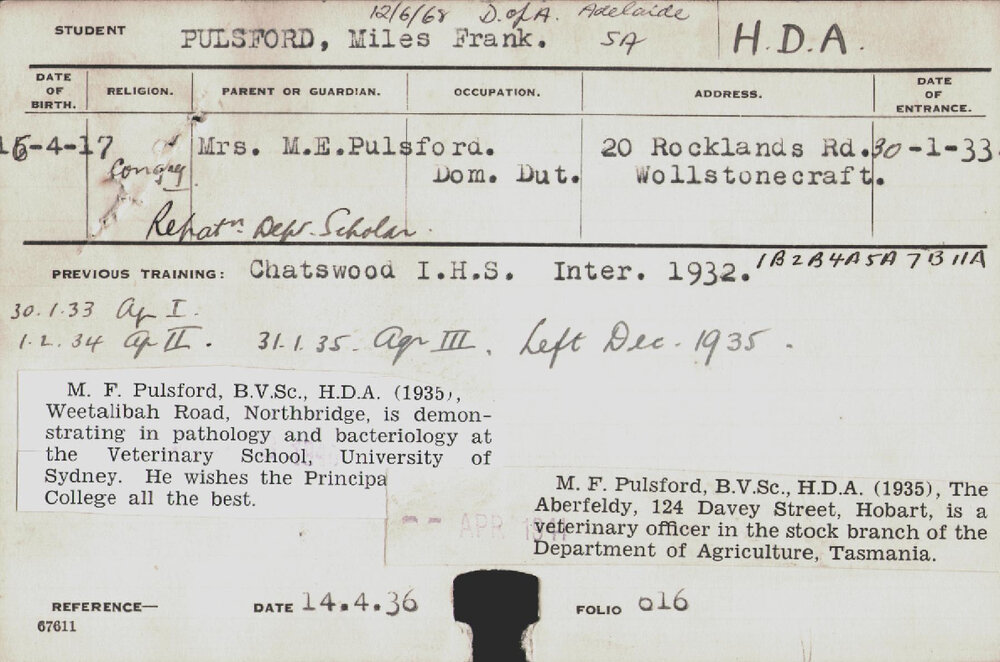 12/6/68 D. of A. Adelaide
STUDENT PULSFORD, Miles Frank. SA H.D.A.
DATE OF BIRTH. RELIGION. PARENT OR GUARDIAN. OCCUPATION. ADDRESS. DATE OF ENTRANCE.
-4-17 Mrs. M.E.Pulsford. 20 Rocklands Rd. 30-1-33
Congreg. Dom. Dut. Wollstonecraft.
Repatn Dept. Scholar.
PREVIOUS TRAINING: Chatswood I.H.S. Inter. 1932. 1B 2B 4A 5A 7B 11A
30.1.33 Ag I.
1.2.34 Ag II. 31.1.35. Agr III. Left Dec. 1935.
M. F. Pulsford, B.V.Sc., H.D.A. (1935),
Weetalibah Road, Northbridge, is demon-
strating in pathology and bacteriology at
the Veterinary School, University of
Sydney. He wishes the Principa
College all the best.
M. F. Pulsford, B.V.Sc., H.D.A. (1935), The
Aberfeldy, 124 Davey Street, Hobart, is a
veterinary officer in the stock branch of the
Department of Agriculture, Tasmania.
APR
REFERENCE— DATE 14.4.36 FOLIO 616
67611